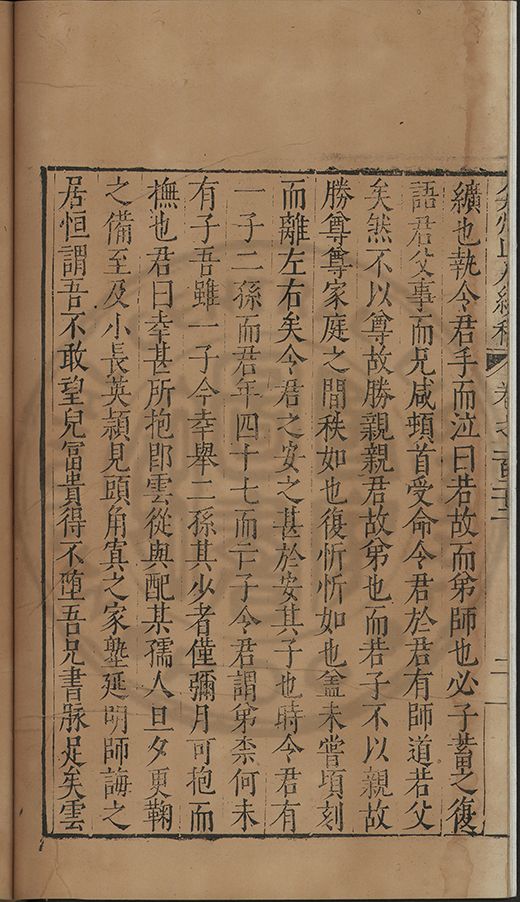 纊也執令君手而泣曰若故而弟師也必子蓄之復
語君父事而兄咸頓首受命令君於君有師道若父
矣然不以尊故勝親親君故弟也而君子不以親故
勝尊尊家庭之間秩如也復忻忻如也盖未嘗頃刻
而離左右矣令君之安之甚於安其子也時令君有
一子二孫而君年四十七而亡子令君謂弟柰何未
有子吾雖一子今幸舉二孫其少者僅彌月可抱而
撫也君曰幸甚所抱卽雲從與配某孺人旦夕更鞠
之備至及小長英穎見頭角寘之家塾延明師誨之
居恒謂吾不敢望兒富貴得不堕吾兄書脉足矣雲